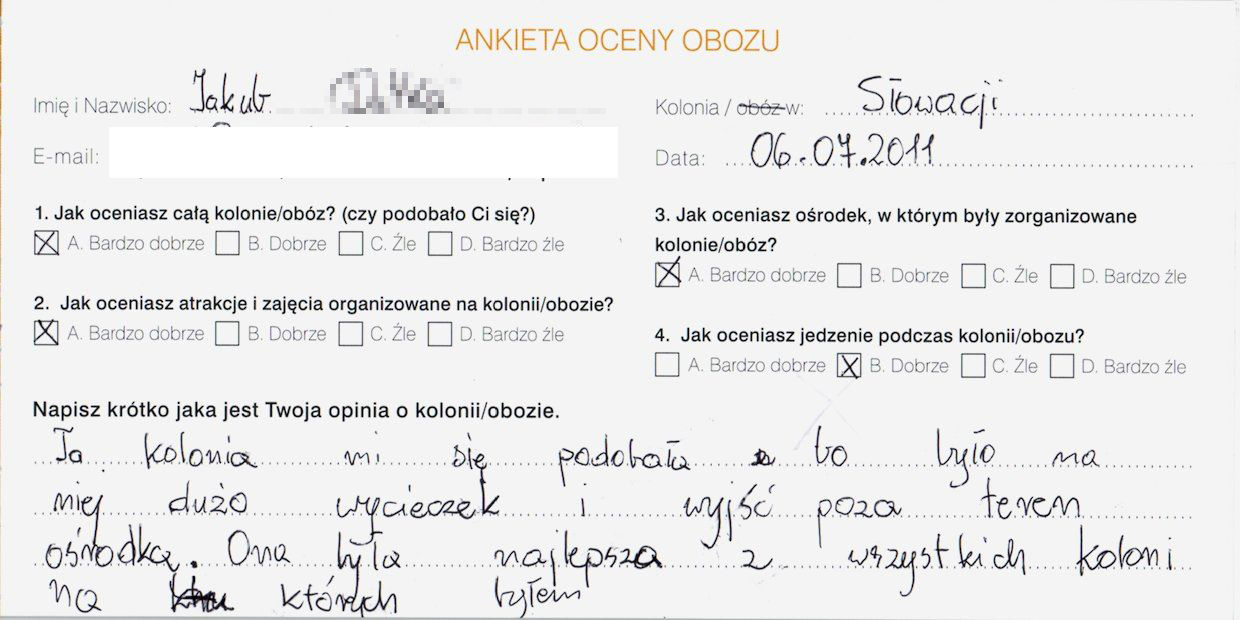 ANKIETA OCENY OBOZU
Imię i Nazwisko: Jakub
Kolonia / obóz w: Słowacji
E-mail:
Data: 06.07.2011
1. Jak oceniasz całą kolonie/obóz? (czy podobało Ci się?)
A. Bardzo dobrze B. Dobrze C. Źle D. Bardzo źle
2. Jak oceniasz atrakcje i zajęcia organizowane na kolonii/obozie?
A. Bardzo dobrze B. Dobrze C. Źle D. Bardzo źle
3. Jak oceniasz ośrodek, w którym były zorganizowane
kolonie/obóz?
A. Bardzo dobrze B. Dobrze C. Źle D. Bardzo źle
4. Jak oceniasz jedzenie podczas kolonii/obozu?
A. Bardzo dobrze B. Dobrze C. Źle D. Bardzo źle
Napisz krótko jaka jest Twoja opinia o kolonii/obozie.
Ta kolonia mi się podobała bo było na
niej dużo wycieczek i wyjść poza teren
ośrodka. Ona była najlepsza z wszystkich koloni
na których byłem